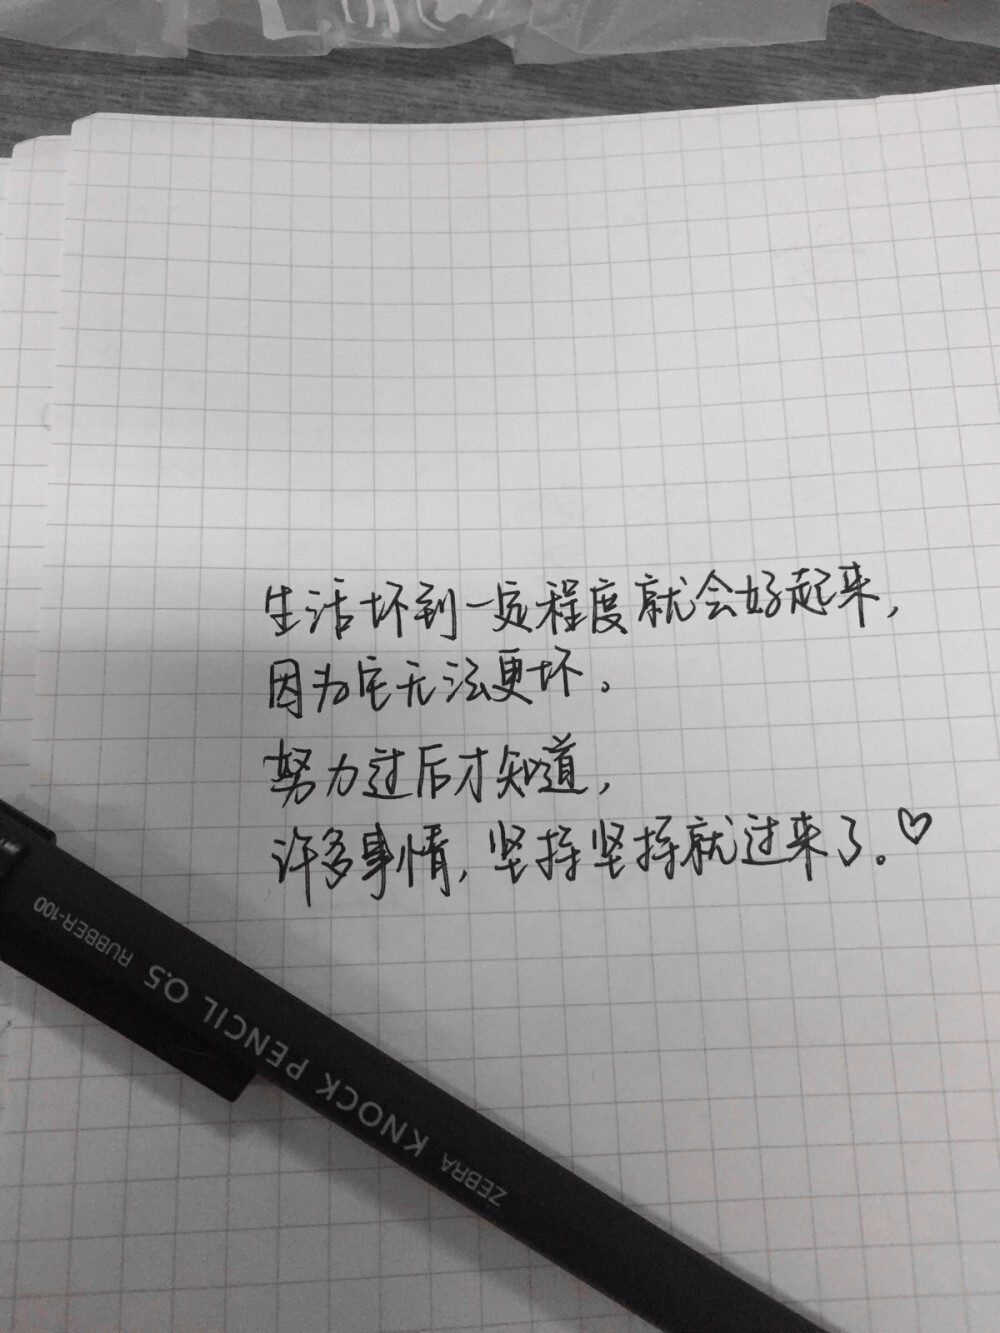 生活坏到一定程度就会好起来，
因为它无法更坏。
努力过后才知道，
许多事情，坚持坚持就过来了。♡
ZEBRA KNOCK PENCIL 0.5 RUBBER-100